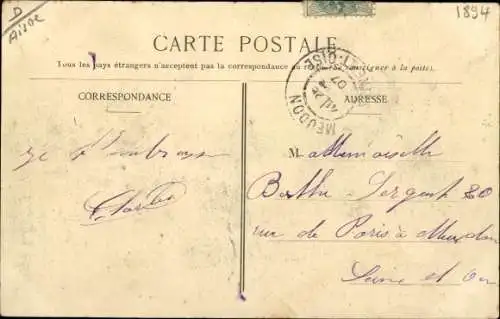 D
Aisne
1894
CARTE POSTALE
Tous les pays étrangers n'acceptent pas la correspondance au recto (se renseigner à la poste).
CORRESPONDANCE
ADRESSE
MEUDON
07
S.-ET-OISE
je t'embrasse
M ademoiselle
Berthe Sergent 20
rue de Paris à Meudon
Seine et Oise